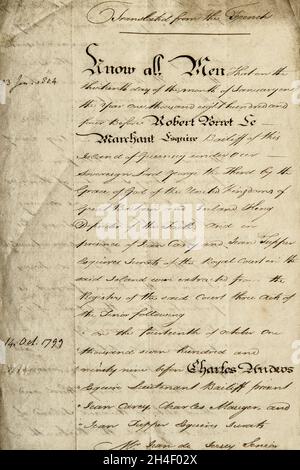 Translated from the French
Know all Men that on the
13 Jan. 1804
thirteenth day of the month of January in
the Year one thousand eight hundred and
four Before Robert Porret Le
Marchant Esquire Bailiff of this
Island of Guernsey under our
Sovereign Lord George the Third by the
Grace of God of the United Kingdoms of
Great Ireland King
Defender of the Faith and in
presence of Jean Carey and Jean Tupper
Esquires Jurats of the Royal Court in the
said Island were extracted from the
Register of the said Court three Acts of
the Tenor following
14 Oct. 1799
on the fourteenth of October One
thousand seven hundred and
ninety nine before Charles Andros
Esquire Lieutenant Bailiff present
Jean Carey Charles Mauger, and
Jean Tupper Esquires Jurats
Mr. Jean de Jersey Senior
alamy
a
alamy
Image ID: 2H4F02X
www.alamy.com